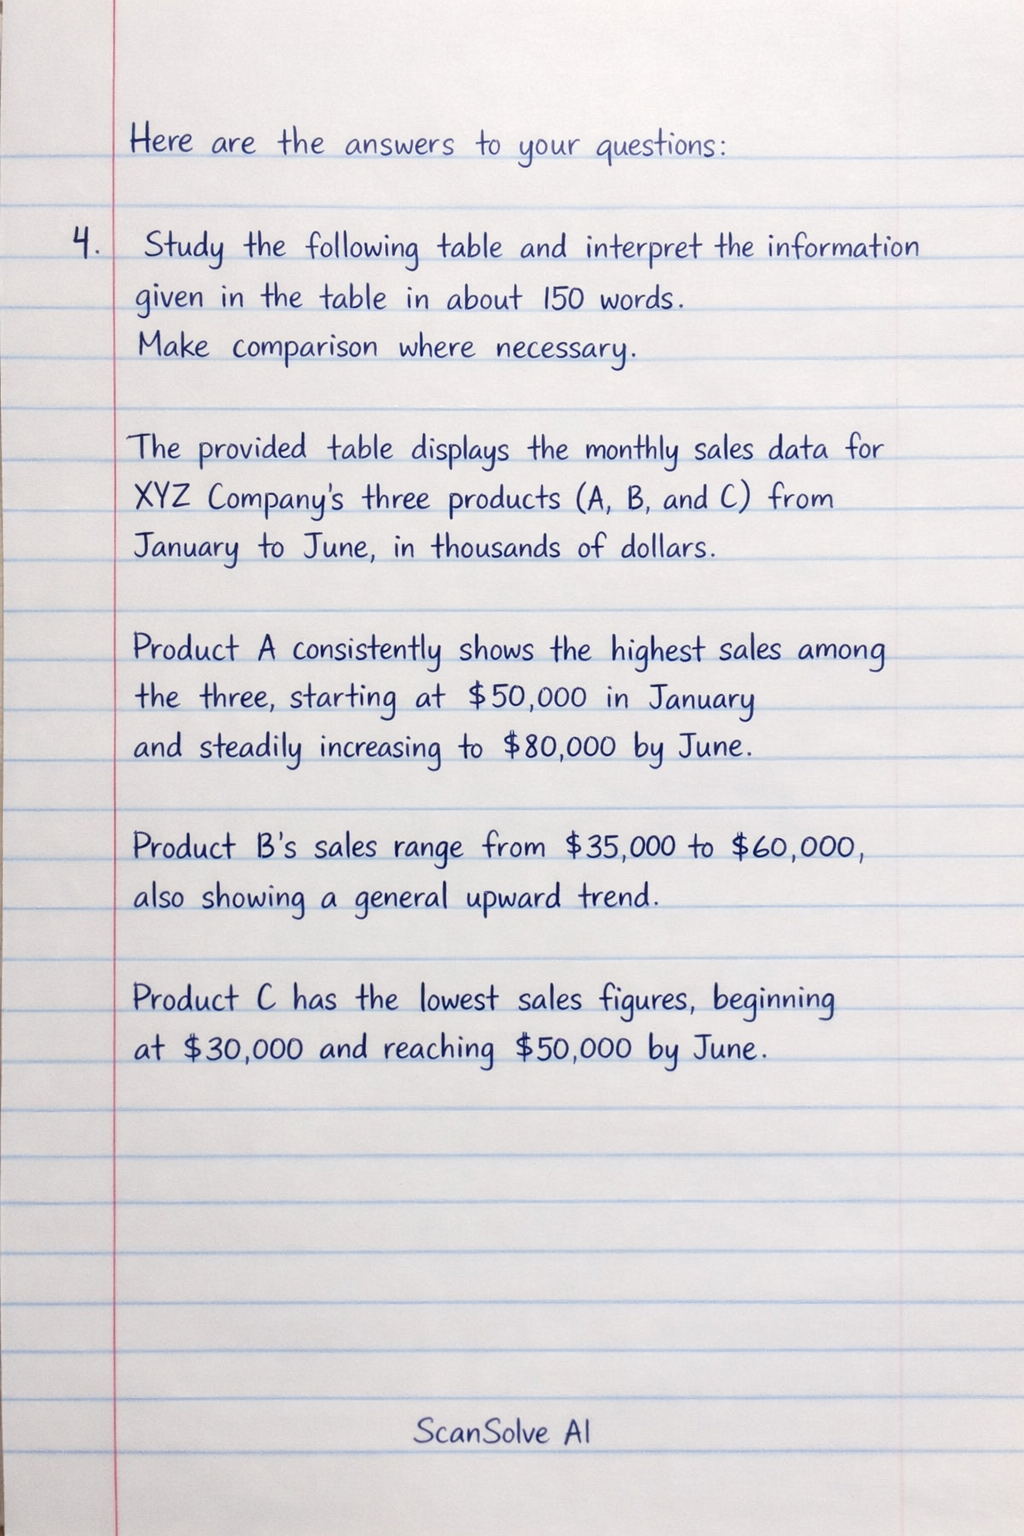 Here are the answers to your questions:
4. Study the following table and interpret the information
given in the table in about 150 words.
Make comparison where necessary.
The provided table displays the monthly sales data for
XYZ Company's three products (A, B, and C) from
January to June, in thousands of dollars.
Product A consistently shows the highest sales among
the three, starting at $50,000 in January
and steadily increasing to $80,000 by June.
Product B's sales range from $35,000 to $60,000,
also showing a general upward trend.
Product C has the lowest sales figures, beginning
at $30,000 and reaching $50,000 by June.
ScanSolve AI